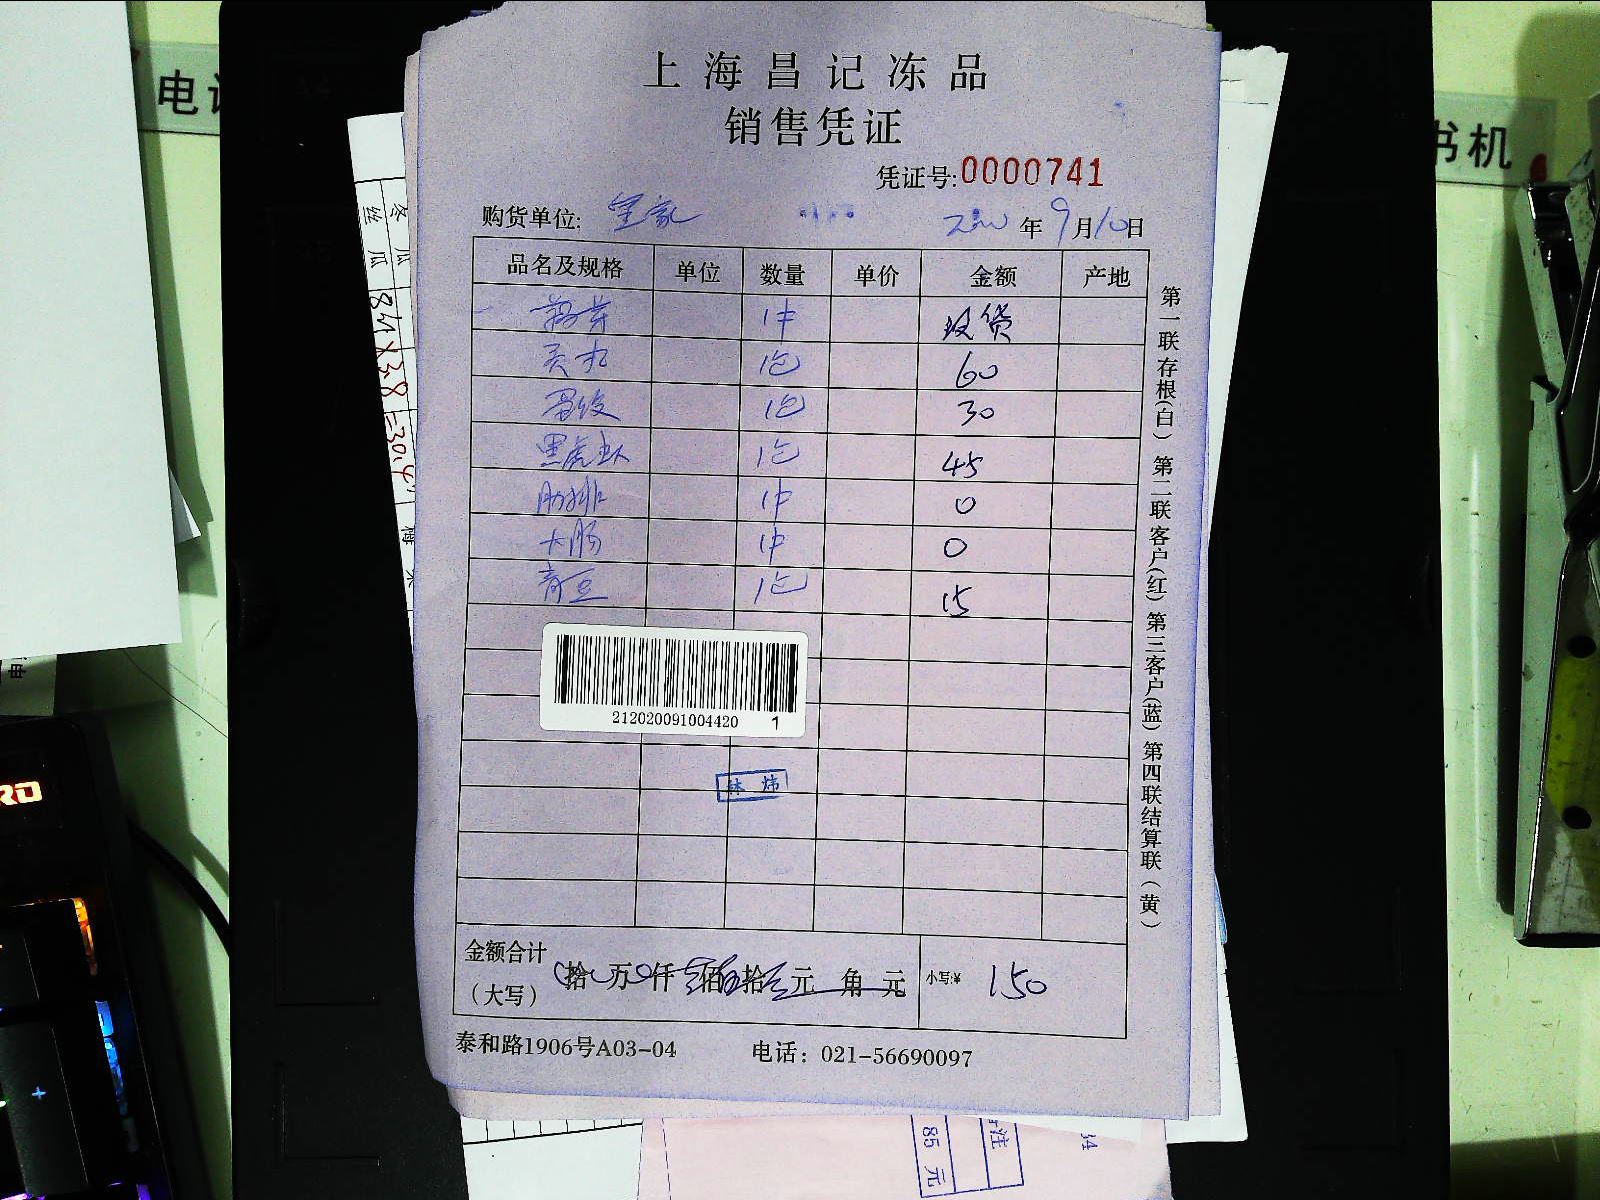 上海昌记冻品
销售凭证
凭证号:0000741
购货单位: 年9月10日
品名及规格 单位 数量 单价 金额 产地
1件 没货
1包 60
1包 30
黑虎虾 1包 45
肋排 1件 0
大肠 1件 0
青豆 1包 15
212020091004420 1
林炜
金额合计
(大写) 拾 万 仟 佰 拾 元 角 元 小写:¥ 150
泰和路1906号A03-04 电话: 021-56690097
第一联存根(白) 第二联客户(红) 第三客户(蓝) 第四联结算联(黄)
电
书机
冬瓜
丝瓜 8斤×3.8=30.4
85元